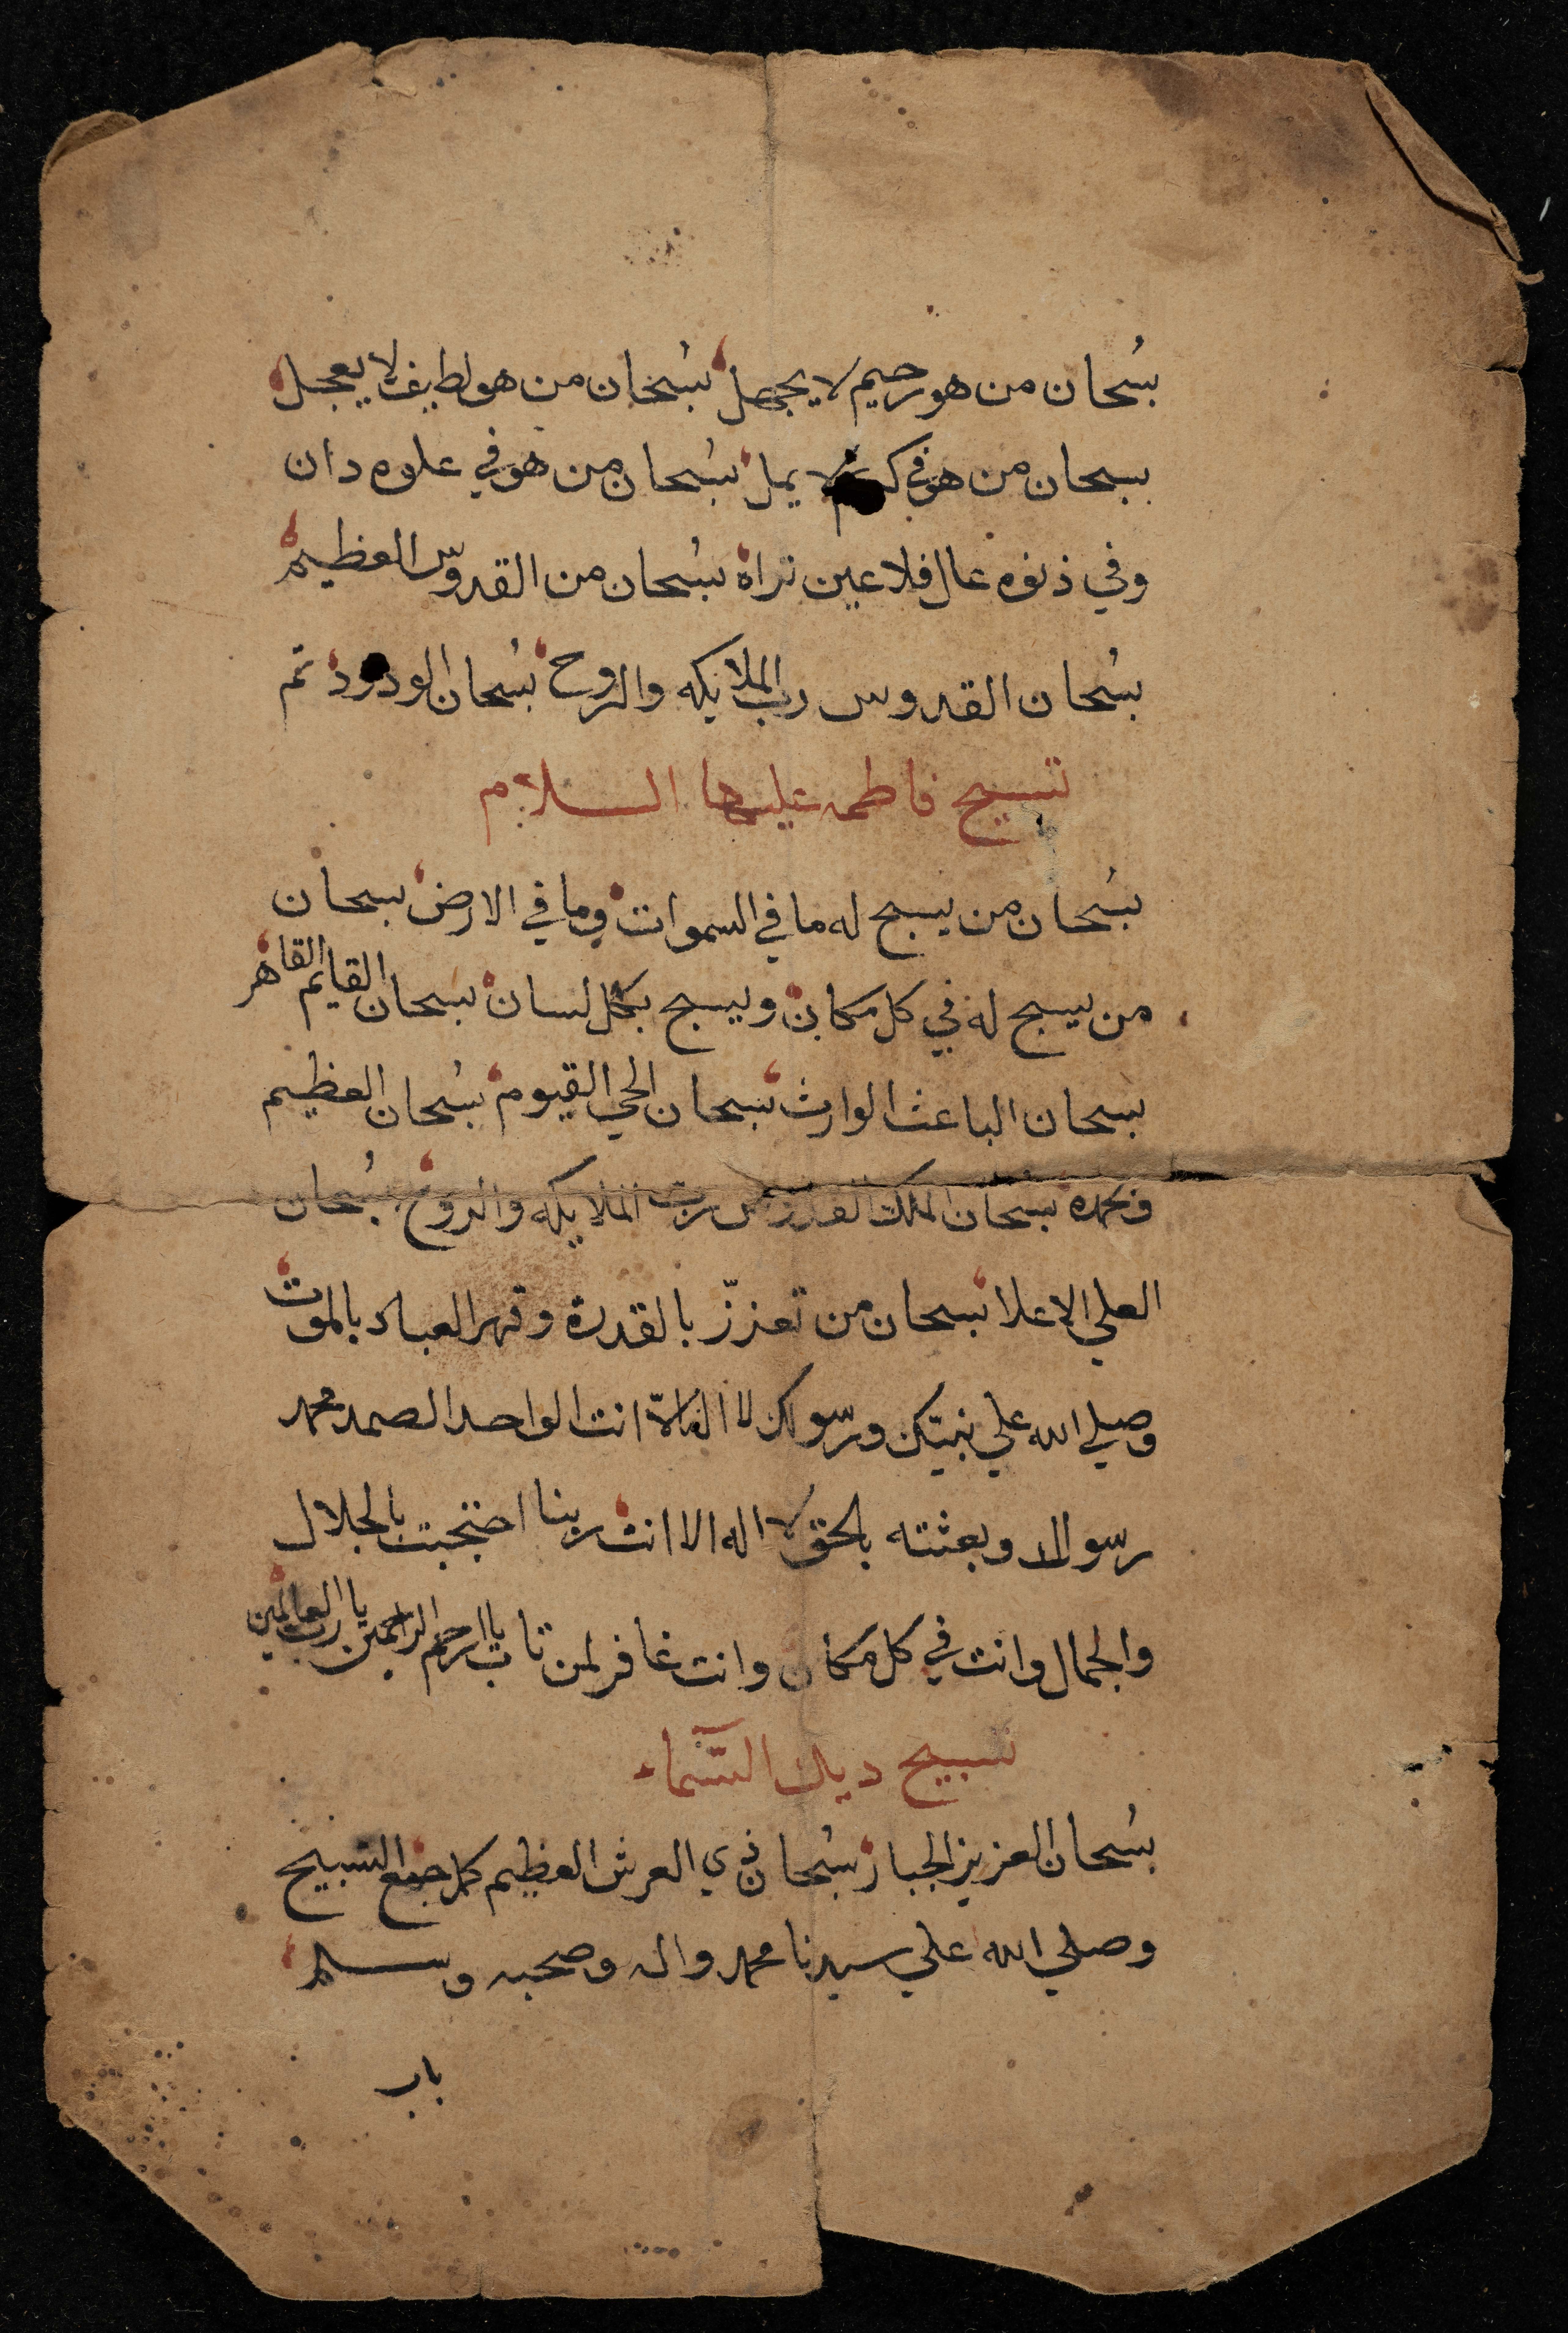 سُبحان من هو رحيم لا يجهل سُبحان من هو لطيف لا يعجل
سبحان من هو في كرم لا يمل سُبحان من هو في علوه دان
وفي دنوه عال فلا عين تراه سُبحان من القدوس العظيم
سُبحان القدوس رب الملايكه والروح سُبحان الودود تم
تسبيح فاطمه عليها السلام
سُبحان من يسبح له ما في السموات وما في الارض سبحان
من يسبح له في كل مكان ويسبح بكل لسان سبحان القايم القاهر
سبحان الباعث الوارث سبحان الحي القيوم سُبحان العظيم
وبحمده سُبحان الملك القدوس رب الملايكه والروح سُبحان
العلي الاعلا سبحان من تعزّز بالقدرة وقهر العباد بالموت
وصلي الله علي نبيك ورسولك لا اله الاّ انت الواحد الصمد محمد
رسولك وبعثته بالحق لا اله الا انت ربنا احتجبت بالجلال
والجمال وانت في كل مكان وانت غافر لمن تاب يا ارحم الراحمين يا رب العالمين
تسبيح ديك السّمآء
سُبحان العزيز الجبار سُبحان ذي العرش العظيم كمل جميع التسبيح
وصلي الله علي سيدنا محمد واله وصحبه وسلم
باب